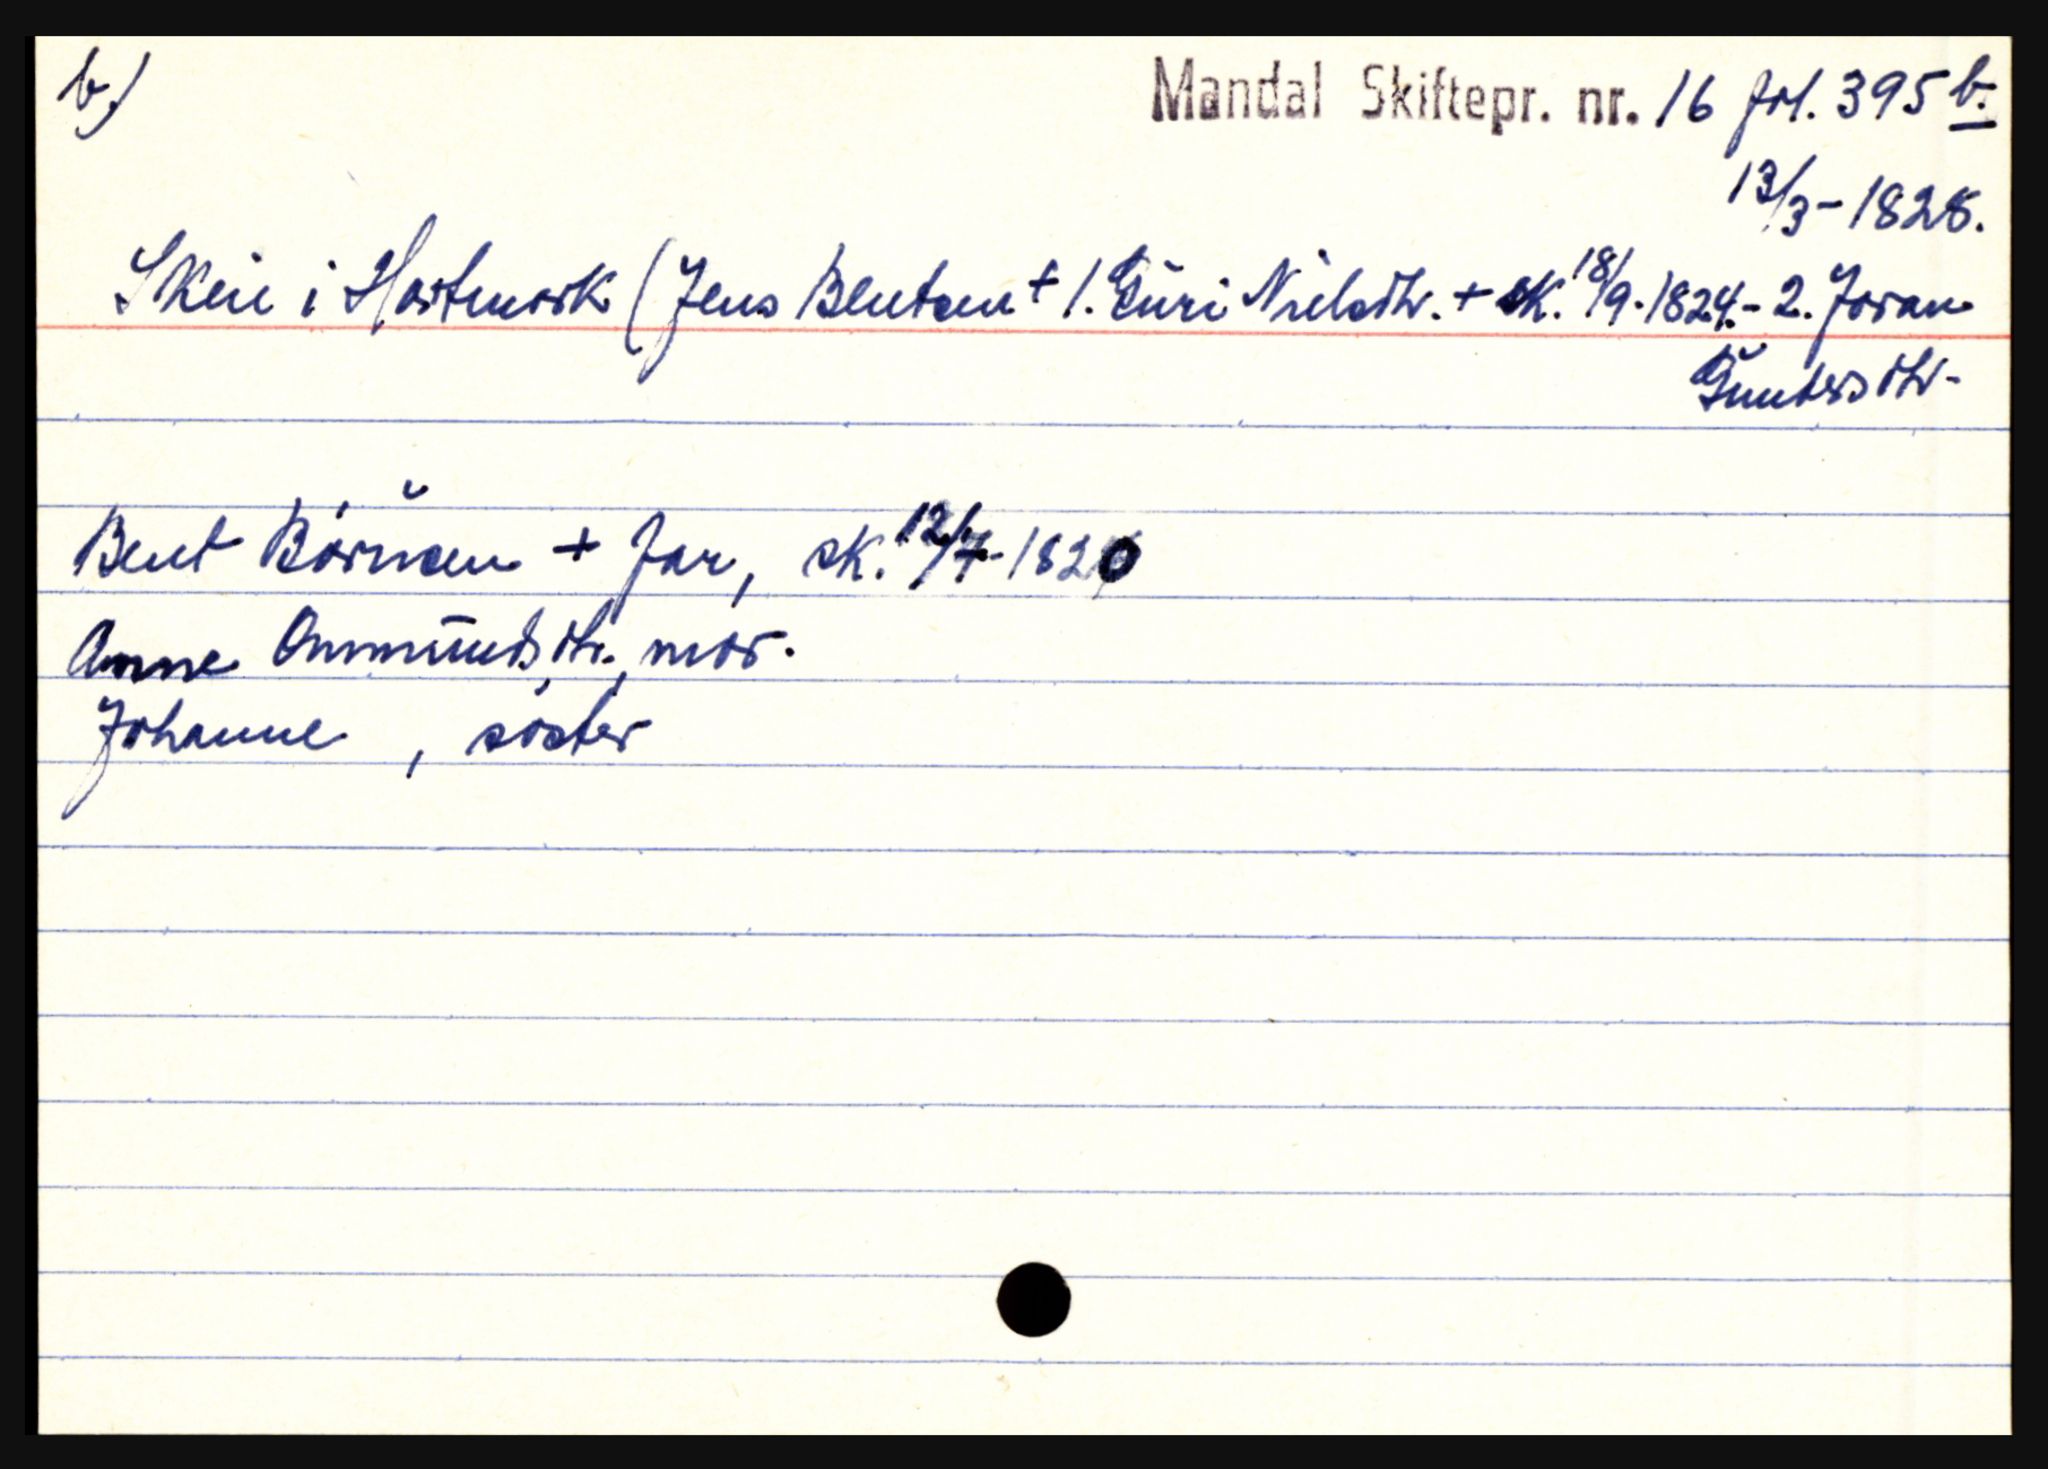 b)
Mandal Skiftepr. nr. 16 fol. 395 b.
13/3-1828.
Skeie i Hartmark (Jens Bentsen + 1. Guri Nielsdtr. + sk. 18/9-1824.- 2. Joran
Guntersdtr-
Bent Börusen + far, sk. 12/7-1820
Anne Ommundsdtr., mor.
Johanne , söster